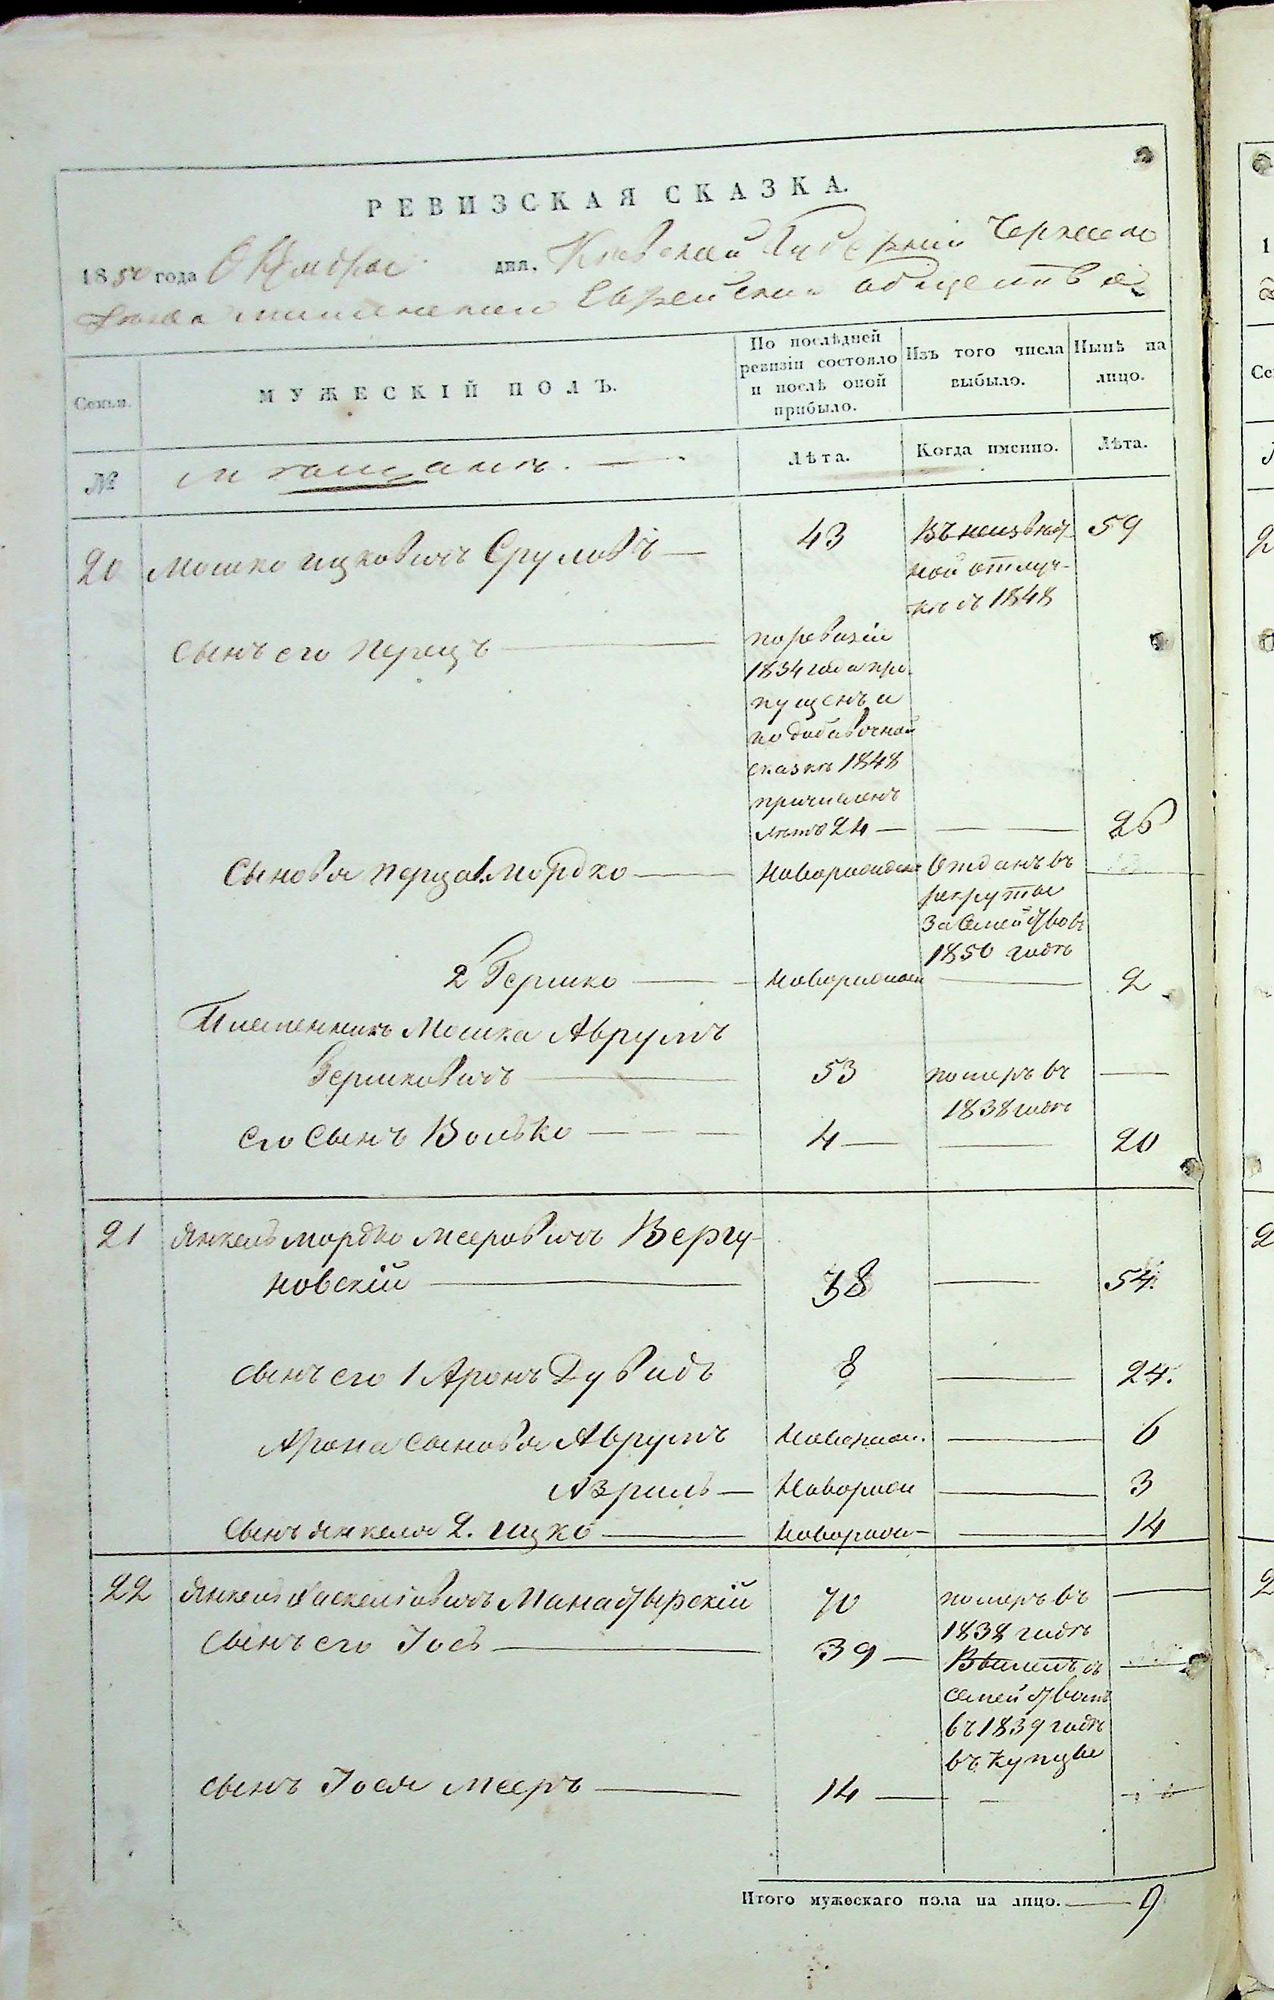 РЕВИЗСКАЯ СКАЗКА.
1850 года Октября дня, Кіевской Губерніи Черкаскаго
мѣщанскаго Еврейскаго общества
Семьи.
МУЖЕСКІЙ ПОЛЪ.
По послѣдней ревизіи состояло и послѣ оной прибыло.
Изъ того числа выбыло.
Нынѣ на лицо.
№
Мѣщанъ. —
Лѣта.
Когда именно.
Лѣта.
20 Мошко Ицковичъ Сруловъ — 43 Въ неизвѣст 59
ной отлуч-
кѣ съ 1848
сынъ его Перецъ — по ревизіи
1834 года про
пущенъ а
по добавочной
сказкѣ 1848
причисленъ
лѣтъ 24 — — 26
Сыновья Перца 1. Мордко — новорожден Отданъ въ
рекруты
за семейство въ
1850 годѣ
2 Гершко — новорожден — 2
Племенникъ Мошка Аврумъ
Гершковичъ — 53 померъ въ —
1838 годѣ
Его сынъ Волько — 4 — — 20
21 Янкель Мордко Мееровичъ Вергу-
новскій — 38 — 54.
сынъ его 1 Аронъ Дувидъ 8 — 24.
Арона сыновья Аврумъ новорож. — 6
Азриль — новорож — 3
Сынъ Янкеля 2. Ицко — новорож — 14
22 Янкель Хаскелевичъ Манастырскій 70 померъ въ —
1838 годѣ
сынъ его Іось — 39 — Вышелъ съ —
семействомъ
въ 1839 годѣ
въ купцы
сынъ Іося Мееръ — 14 — —
Итого мужескаго пола на лицо. — 9